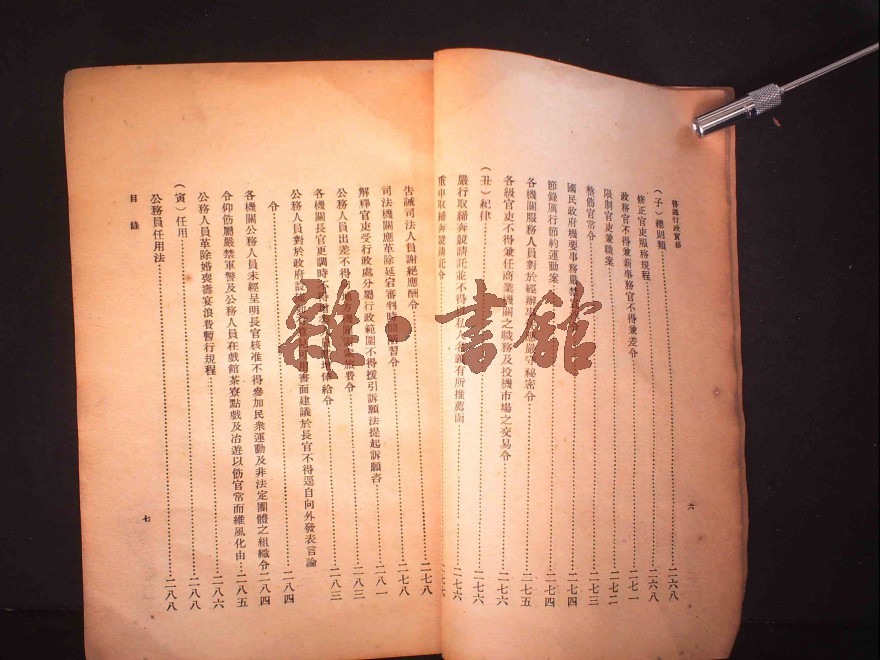 普通行政實務
六
(子)總則類……二六八
修正官吏服務規程……二六八
政務官不得兼薪事務官不得兼差令……二七一
限制官吏兼職案……二七二
整飭官常令……二七三
國民政府機要事務嚴禁……二七四
節錄厲行節約運動案……二七四
各機關服務人員對於經辦事……嚴守秘密令……二七五
各級官吏不得兼任商業機關之職務及投機市場之交易令……二七六
(丑)紀律……二七六
嚴行取締奔競請託並不得以私人名義有所推薦函……二七六
重申取締奔競請託令……二七六
告誡司法人員謝絕應酬令……二七八
司法機關應革除延宕審判時間積習令……二七八
解釋官吏受行政處分屬行政範圍不得援引訴願法提起訴願咨……二八一
公務人員出差不得……地方……旅費令……二八三
各機關長官更調時不得……俸給令……二八三
公務人員對於政府設施……用書面建議於長官不得逕自向外發表言論
令……二八四
各機關公務人員未經呈明長官核准不得參加民衆運動及非法定團體之組織令……二八四
令仰飭屬嚴禁軍警及公務人員在戲館茶寮點戲及冶遊以飭官常而維風化由……二八五
公務人員革除婚喪壽宴浪費暫行規程……二八六
(寅)任用……二八八
公務員任用法……二八八
目錄
七
雜·書館